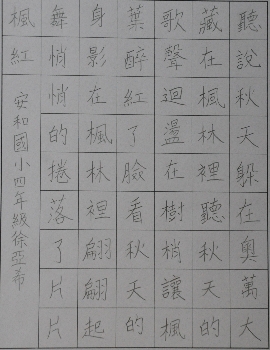 聽說秋天躲在奧萬大
藏在楓林裡聽秋天的
歌聲迴盪在樹梢讓楓
葉醉紅了臉看秋天的
身影在楓林裡翩翩起
舞悄悄的捲落了片片
楓紅
安和國小四年級徐亞希